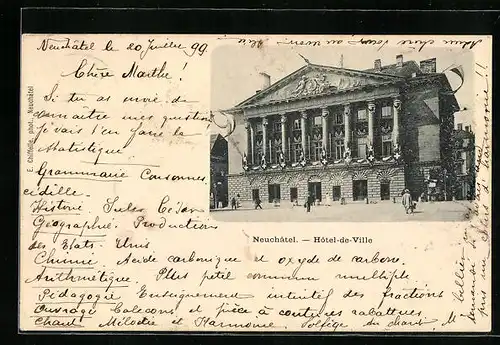 Neuchâtel le 20 Juillet 99.
Chère Marthe!
Si tu as envie de
connaître mes question
je vais t'en faire la
statistique
Grammaire Consonnes
cédille.
Histoire Jules César
Géographie. Production
des Etats Unis
Chimie Acide carbonique et oxyde de carbone.
Arithmétique. Plus petit commun multiple
Pédagogie Enseignement intuitif des fractions
Ouvrage Caleçons et pièce à coutures rabattues
Chant Mélodie et Harmonie. Solfège du chant
E. Chiffelle, phot., Neuchâtel
Neuchâtel. — Hôtel-de-Ville